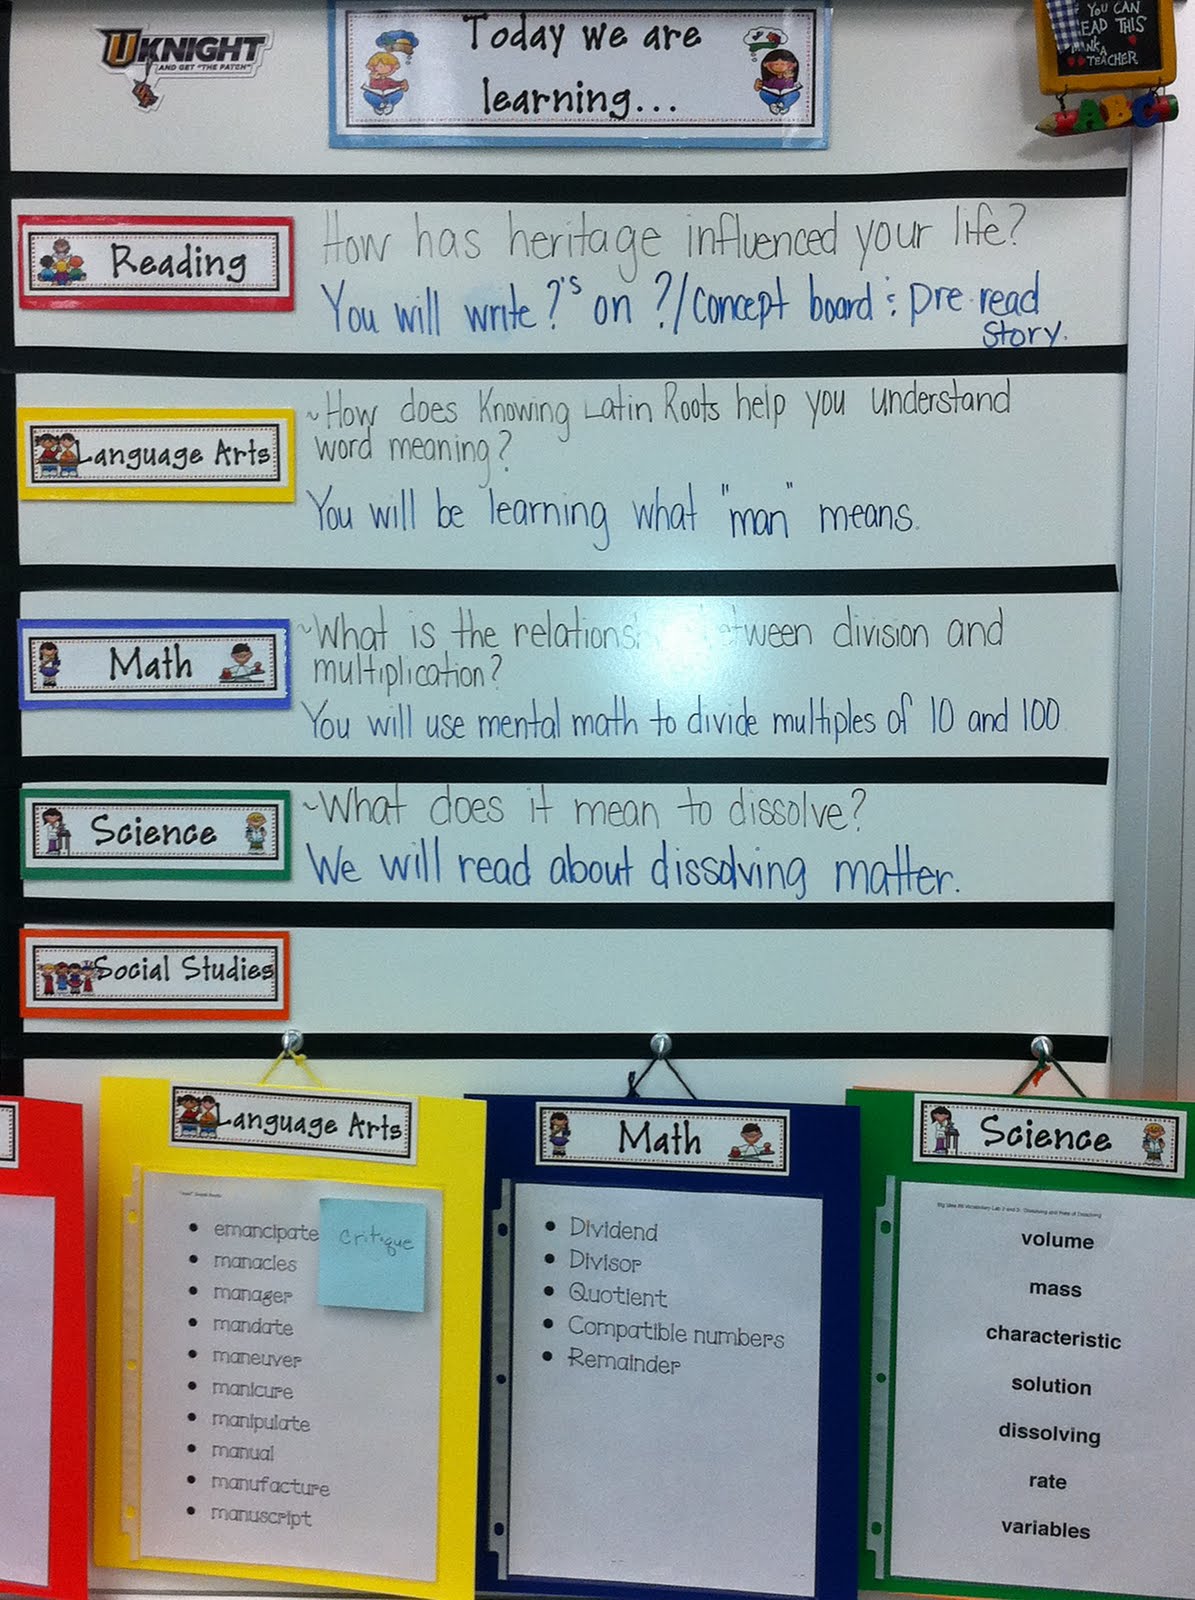 UKNIGHT
AND GET "THE PATCH"
Today we are
learning...
YOU CAN
READ THIS
A
TEACHER
ABC
Reading
How has heritage influenced your life?
You will write ?'s on ?/concept board ; pre-read
story.
Language Arts
~How does Knowing Latin Roots help you understand
word meaning?
You will be learning what "man" means.
Math
~What is the between division and
multiplication?
You will use mental math to divide multiples of 10 and 100
Science
~What does it mean to dissolve?
We will read about dissolving matter.
Social Studies
Language Arts
emancipate
manacles
manager
mandate
maneuver
manicure
manipulate
manual
manufacture
manuscript
critique
Math
Dividend
Divisor
Quotient
Compatible numbers
Remainder
Science
volume
mass
characteristic
solution
dissolving
rate
variables